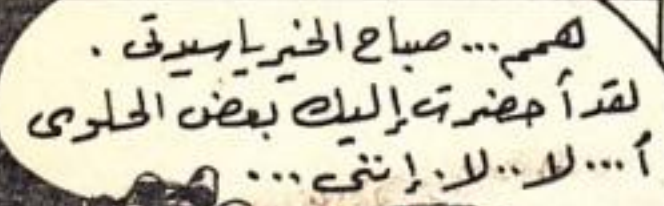 همم... صباح الخير يا سيدتى .
لقد أحضرت إليك بعض الحلوى
أ... لا.. لا. إننى ...